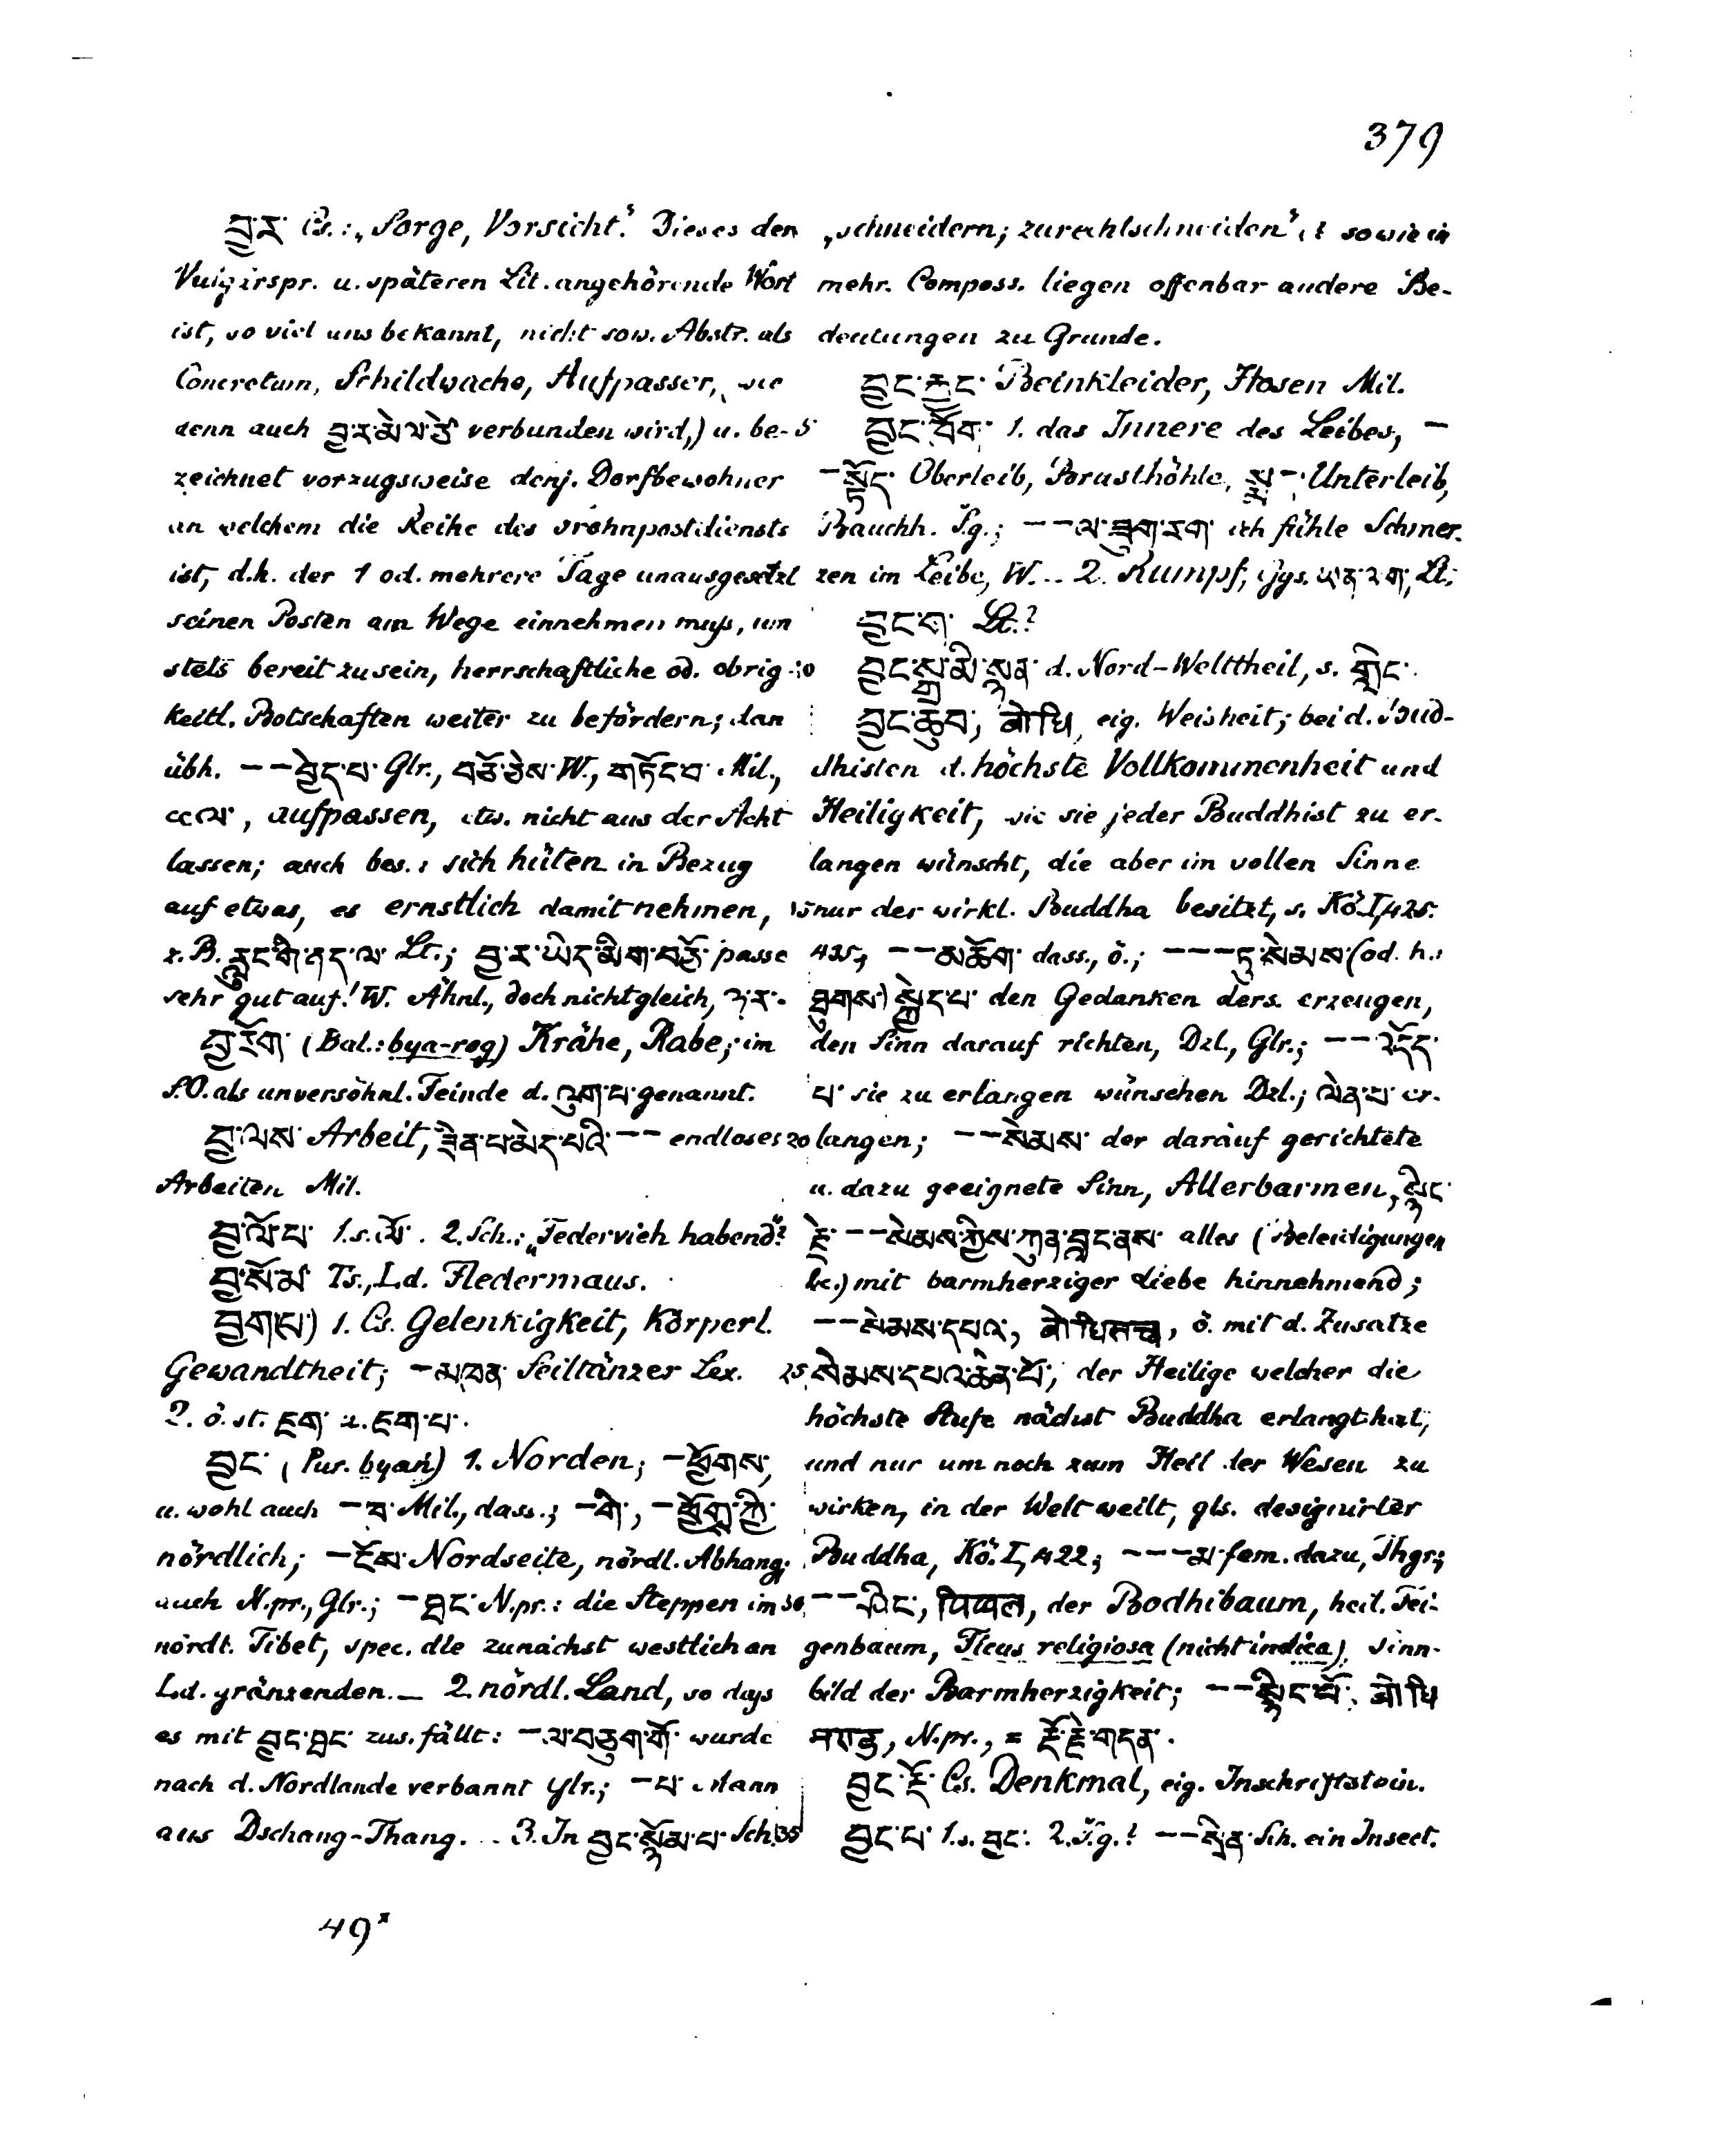 379
བྱ་ར་ Cs.: „Sorge, Vorsicht.“ Dieses den
Vulgärspr. u. späteren Lit. angehörende Wort
ist, so viel uns bekannt, nicht sow. Abstr. als
Concretum, Schildwache, Aufpasser, wie
denn auch བྱ་ར་མེ་ལ་ཙེ་ verbunden wird,) u. be-
zeichnet vorzugsweise denj. Dorfbewohner
an welchem die Reihe des Frohnpostdiensts
ist, d.h. der 1 od. mehrere Tage unausgesetzt
seinen Posten am Wege einnehmen muß, um
stets bereit zu sein, herrschaftliche od. obrig-
keitl. Botschaften weiter zu befördern; dan
übh. –– བྱེད་པ་ Glr., བཅོ་ཅེས་ W., གཏོང་བ་ Mil.,
aufpassen, etw. nicht aus der Acht
lassen; auch bes.: sich hüten in Bezug
auf etwas, es ernstlich damit nehmen,
z. B. རླུང་གི་ནད་ལ་ Lt.; བྱ་ར་ཡིད་མིག་བཅོ་ passe
sehr gut auf! W. Ähnl., doch nicht gleich, ཉ་ར་.
བྱ་རོག་ (Bal.: bya-rog) Krähe, Rabe; im
S.O. als unversöhnl. Feinde d. འུག་པ་ genannt.
བྱ་ལས་ Arbeit, ཟིན་པ་མེད་པའི་ –– endloses
Arbeiten Mil.
བྱ་ལོ་པ་ 1. s. ལོ་. 2. Sch.: „Federvieh habend“?
བྱ་སོ་མ་ Ts., Ld. Fledermaus.
བྱག(པ་) 1. Cs. Gelenkigkeit, Körperl.
Gewandtheit; –མཁན་ Seiltänzer Lex.
2. ö. st. ཇག་ u. ཇག་པ་.
བྱང་ (Pur. byaṅ) 1. Norden; –ཕྱོགས་,
u. wohl auch – Mil., dass.; –གི་, –ཕྱོགས་ཀྱི་
nördlich; –ངོས་ Nordseite, nördl. Abhang;
auch N.pr., Glr.; –ཐང་ N.pr.: die Steppen im
nördl. Tibet, spec. die zunächst westlich an
Ld. gränzenden. — 2. nördl. Land, so daß
es mit བྱང་ཐང་ zus. fällt: –ལ་བཅུག་གོ་ wurde
nach d. Nordlande verbannt Glr.; –པ་ Mann
aus Dschang-Thang. – 3. In བྱང་སྙོམ་པ་ Sch.
„schneidern; zurechtschneiden“ u. sowie in
mehr. Composs. liegen offenbar andere Be-
deutungen zu Grunde.
བྱང་རྐང་ Beinkleider, Hosen Mil.
5 བྱང་ཁོག་ 1. das Innere des Leibes, –
–སྟོད་ Oberleib, Brusthöhle, སྨད་–་ Unterleib,
Bauchh. S.g.; ––ལ་ཟུག་རག་ ich fühle Schmer-
zen im Leibe, W. – 2. Rumpf, Ggs. ཡན་ལག་, Lt.
བྱང་ག་ Lt.?
10 བྱང་སྒྲ་མི་སྙན་ d. Nord-Welttheil, s. གླིང་.
བྱང་ཆུབ་, बोधि, eig. Weisheit; bei d. Bud-
dhisten d. höchste Vollkommenheit und
Heiligkeit, wie sie jeder Buddhist zu er-
langen wünscht, die aber im vollen Sinne
15 nur der wirkl. Buddha besitzt, s. Kö. I, 425.
435, ––མཆོག་ dass., ö.; –––ཏུ་སེམས་ (od. h.:
ཐུགས་) སྐྱེད་པ་ den Gedanken ders. erzeugen,
den Sinn darauf richten, Dzl., Glr.; ––འདོད་
པ་ sie zu erlangen wünschen Dzl.; ལེན་པ་ er-
20 langen; ––སེམས་ der darauf gerichtete
u. dazu geeignete Sinn, Allerbarmen, སྙིང་
རྗེ་––སེམས་ཀྱིས་ཀུན་བླང་ནས་ alles (Beleidigungen
&c.) mit barmherziger Liebe hinnehmend;
––སེམས་དཔའ་, बोधिसत्त्व, ö. mit d. Zusatze
25 སེམས་དཔའ་ཆེན་པོ་, der Heilige welcher die
höchste Stufe nächst Buddha erlangt hat,
und nur um noch zum Heil der Wesen zu
wirken, in der Welt weilt, gls. designirter
Buddha, Kö. I, 422; –––མ་ fem. dazu, Thgr.;
30 ––ཤིང་, पिप्पल, der Bodhibaum, heil. Fei-
genbaum, Ficus religiosa (nicht indica), Sinn-
bild der Barmherzigkeit; ––སྙིང་པོ་, बोधि
मण्ड, N.pr., = རྡོ་རྗེ་གདན་.
བྱང་རྡོ་ Cs. Denkmal, eig. Inschriftstein.
35 བྱང་པ་ 1. s. བྱང་. 2. S.g.? ––སྲིན་ Sch. ein Insect.
49*